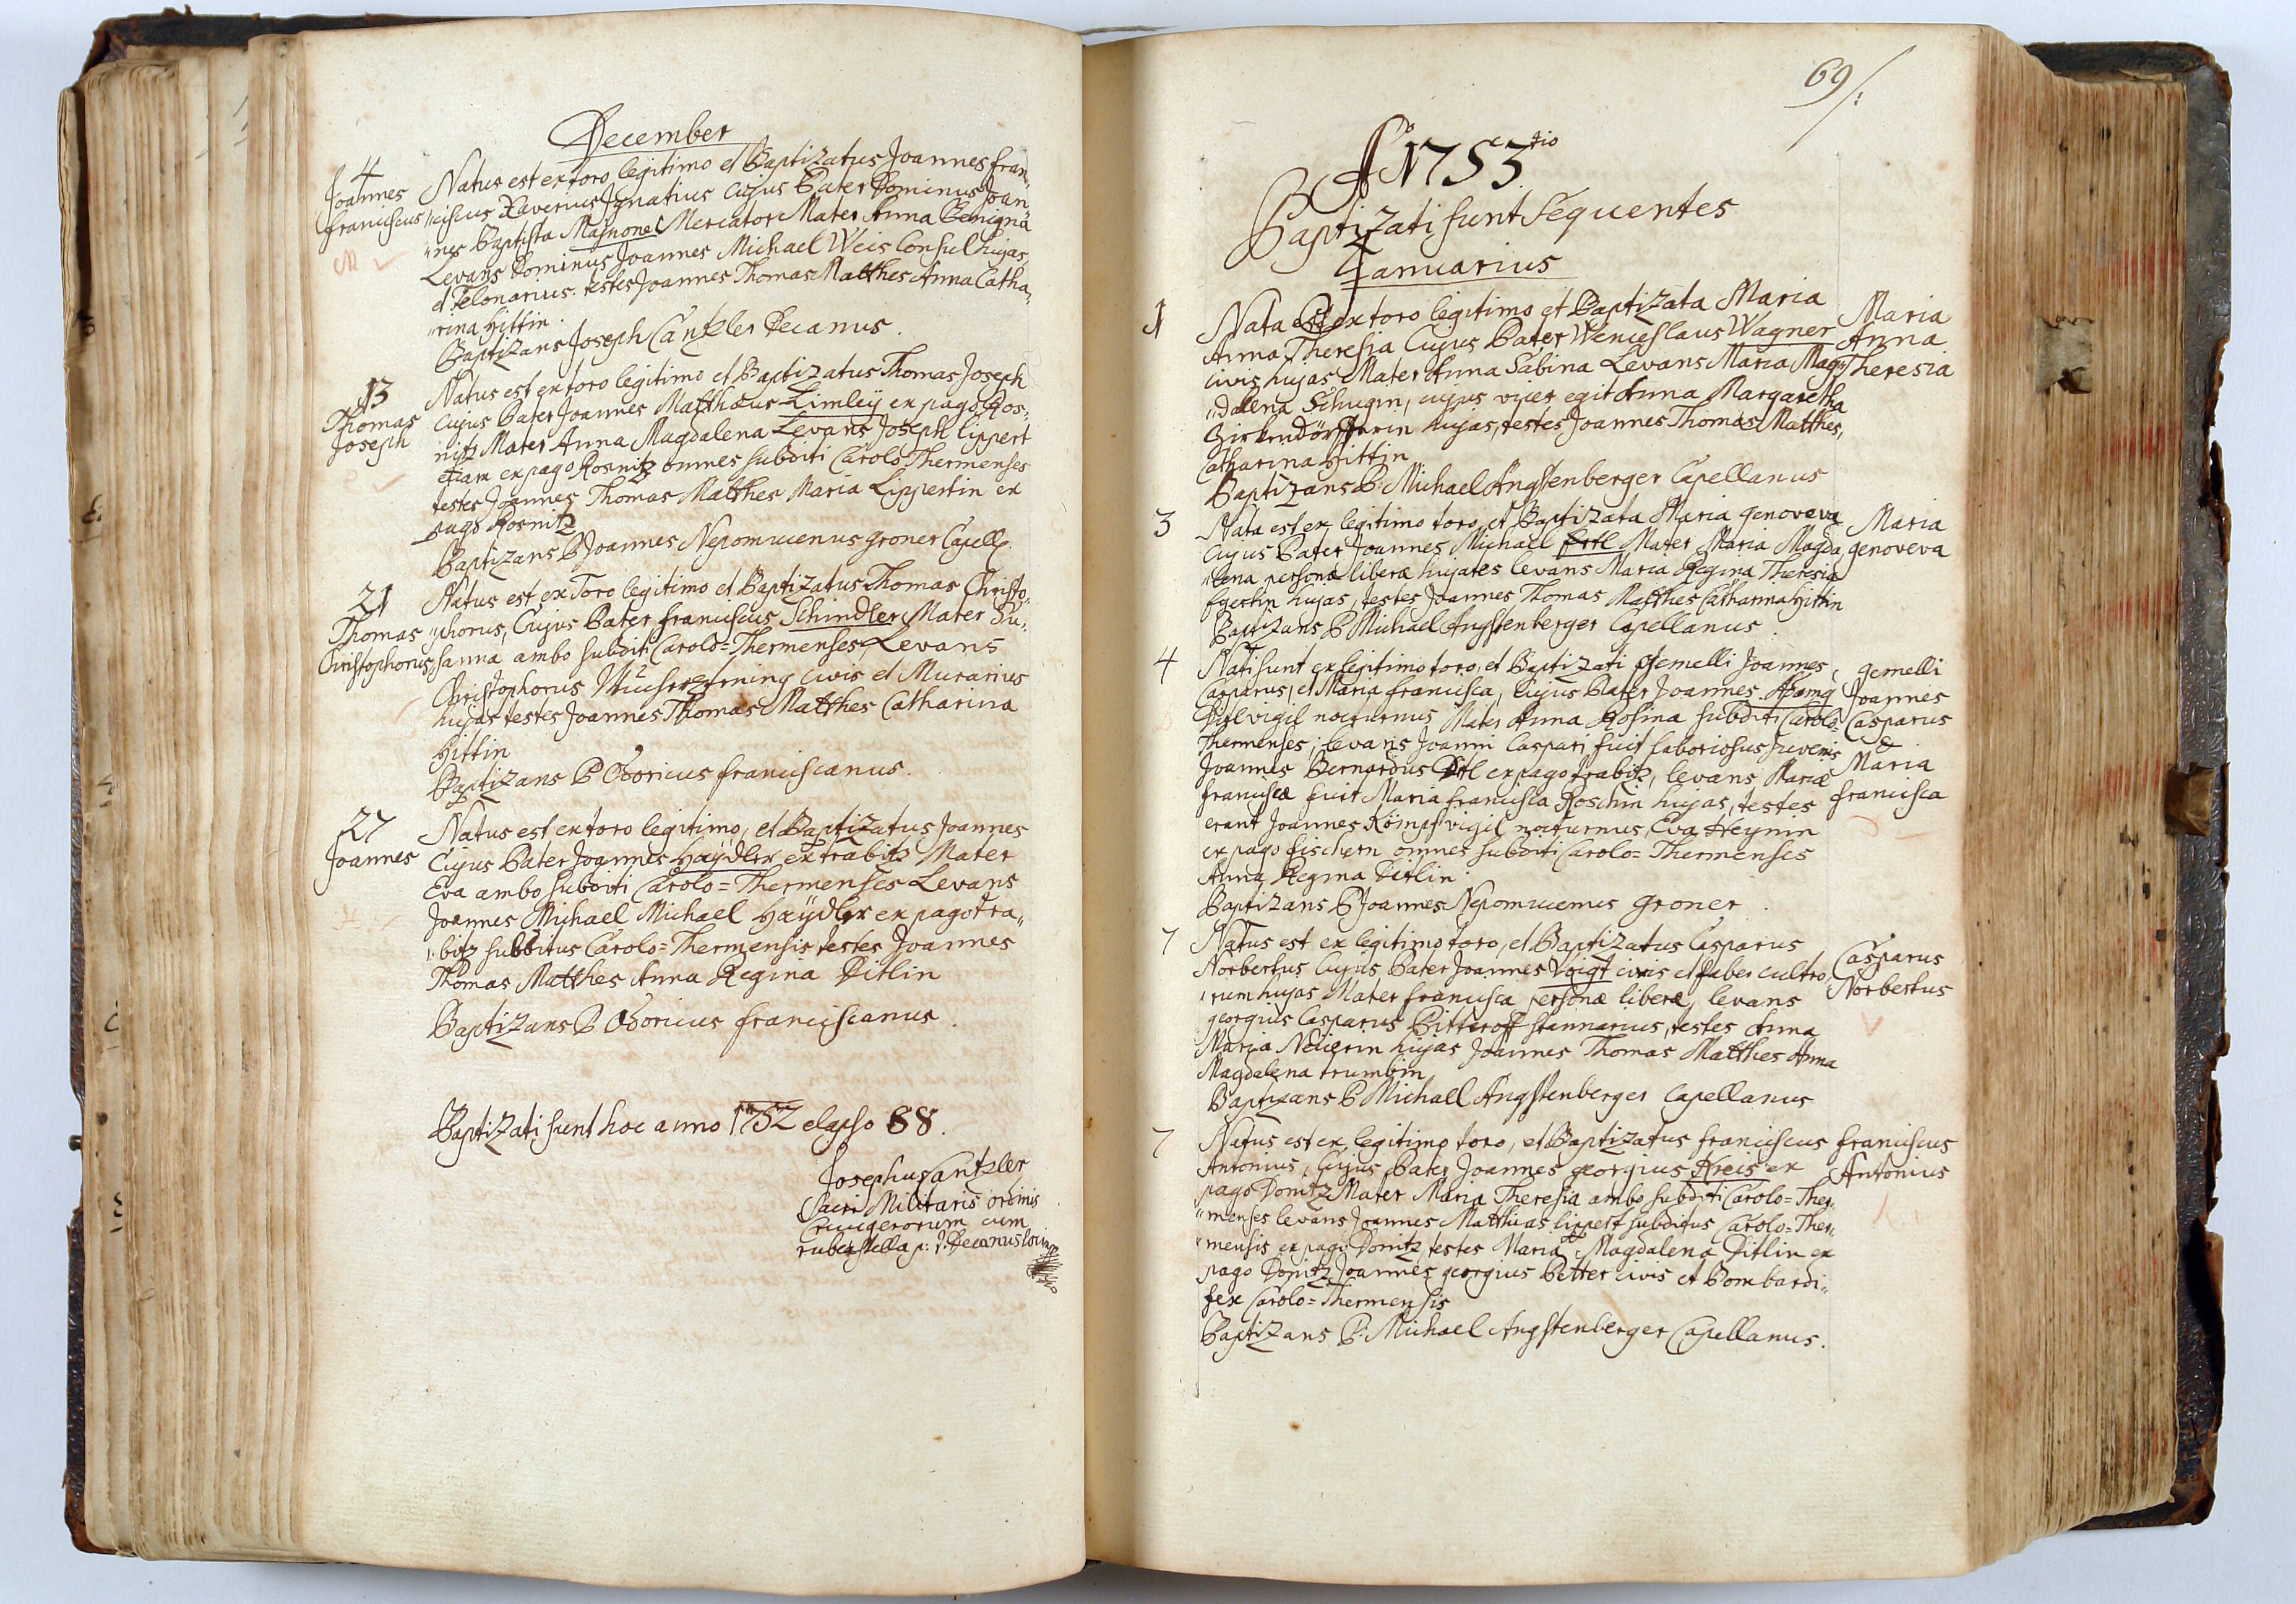 December
4
Joannes
Franciscus
Natus est ex toro legitimo et Baptizatus Joannes Fran„
„ciscus Xaverius Ignatius Cujus Pater Dominus Joan
„nes Baptista Magnone Mercator Mater Anna Benigna
Levans Dominus Joannes Michael Weis Consul hujas,
et Telonarius. testes Joannes Thomas Matthes Anna Catha„
„rina Hittin.
Baptizans Joseph Cantzler Decanus.
13
Thomas
Joseph
Natus est ex toro legitimo et Baptizatus Thomas Joseph
Cujus Pater Joannes Matthæus Limleÿ ex pago Ros„
nitz Mater Anna Magdalena Levans Joseph Lippert
etiam ex pago Rosnitz omnes subditi Carolo Thermenses
testes Joannes Thomas Matthes Maria Lippertin ex
pago Rosnitz
Baptizans P Joannes Nepomucenus Groner Capell.
21
Thomas
Christophorus
Natus est ex Toro legitimo et Baptizatus Thomas Christo„
„phorus, Cujus Pater Franciscus Schindler Mater Su„
sanna ambo subditi Carolo=Thermenses Levans
Christophorus civis et Murarius
hujas testes Joannes Thomas Matthes Catharina
Hittin
Baptizans P Odoricus Franciscanus.
27
Joannes
Natus est ex toro legitimo, et Baptizatus Joannes
Cujus Pater Joannes Haÿdler ex trabitz Mater
Eva ambo subditi Carolo=Thermenses Levans
Joannes Michael Michael Haÿdler ex pago tra„
„bitz subditus Carolo=Thermensis testes Joannes
Thomas Matthes Anna Regina Ditlin
Baptizans P Odoricus Franciscanus.
Baptizati sunt hoc anno 1752 elapso 88.
Josephus Cantzler
Sacri Militaris ordinis
Crucigerorum cum
rubea stella p: t: Decanus loci
69/:
Ao 1753tio
Baptizati sunt Sequentes
Januarius
1
Nata est ex toro legitimo et Baptizata Maria
Anna Theresia Cujus Pater Wenceslaus Wagner
civis hujas Mater Anna Sabina Levans Maria Mag„
„dalena Schugin, cujus vices egit Anna Margaretha
Zirkendörfferin hujas, testes Joannes Thomas Matthes,
Catharina Hittin
Baptizans P: Michael Angstenberger Capellanus
Maria
Anna
Theresia
3
Nata est ex legitimo toro, et Baptizata Maria Genoveva
Cujus Pater Joannes Michael Ertl Mater Maria Magda„
„lena personæ liberæ hujates levans Maria Regina Theresia
Egertin hujas, testes Joannes Thomas Matthes Catharina Hittin
Baptizans P Michael Angstenberger Capellanus.
Maria
Genoveva
4
Nati sunt ex legitimo toro, et Baptizati Gemelli Joannes
Casparus, et Maria Francisca, Cujus Pater Joannes
Ditl vigil nocturnus Mater Anna Rosina subditi Carolo=
Thermenses, levans Joanni Caspari fuit laboriosus juvenis
Joannes Bernardus Ditl ex pago trabitz, levans Mariæ
Franciscæ fuit Maria Francisca Roschin hujas, testes
erant Joannes Kömpf vigil nocturnus, Eva Heynin
ex pago fischern omnes subditi Carolo=Thermenses
Anna Regina Ditlin
Baptizans P Joannes Nepomucenus Groner.
Gemelli
Joannes
Casparus
&
Maria
Francisca
7
Natus est ex legitimo toro, et Baptizatus Casparus
Norbertus Cujus Pater Joannes Voigt civis et faber cultro„
„rum hujas Mater Francisca personæ liberæ, levans
Georgius Casparus Bitteroff stannarius, testes Anna
Maria Neuerin hujas Joannes Thomas Matthes Anna
Magdalena trumbin
Baptizans P Michael Angstenberger Capellanus
Casparus
Norbertus
7
Natus est ex legitimo toro, et Baptizatus Franciscus
Antonius, Cujus Pater Joannes Georgius Kreis ex
pago Donitz Mater Maria Theresia ambo subditi Carolo=Ther„
„menses levans Joannes Matthias Lippert subditus Carolo=Ther„
„mensis ex pago Donitz, testes Maria Magdalena Ditlin ex
pago Donitz Joannes Georgius Petter civis et Bombardi„
fex Carolo=Thermensis
Baptizans P: Michael Angstenberger Capellanus.
Franciscus
Antonius